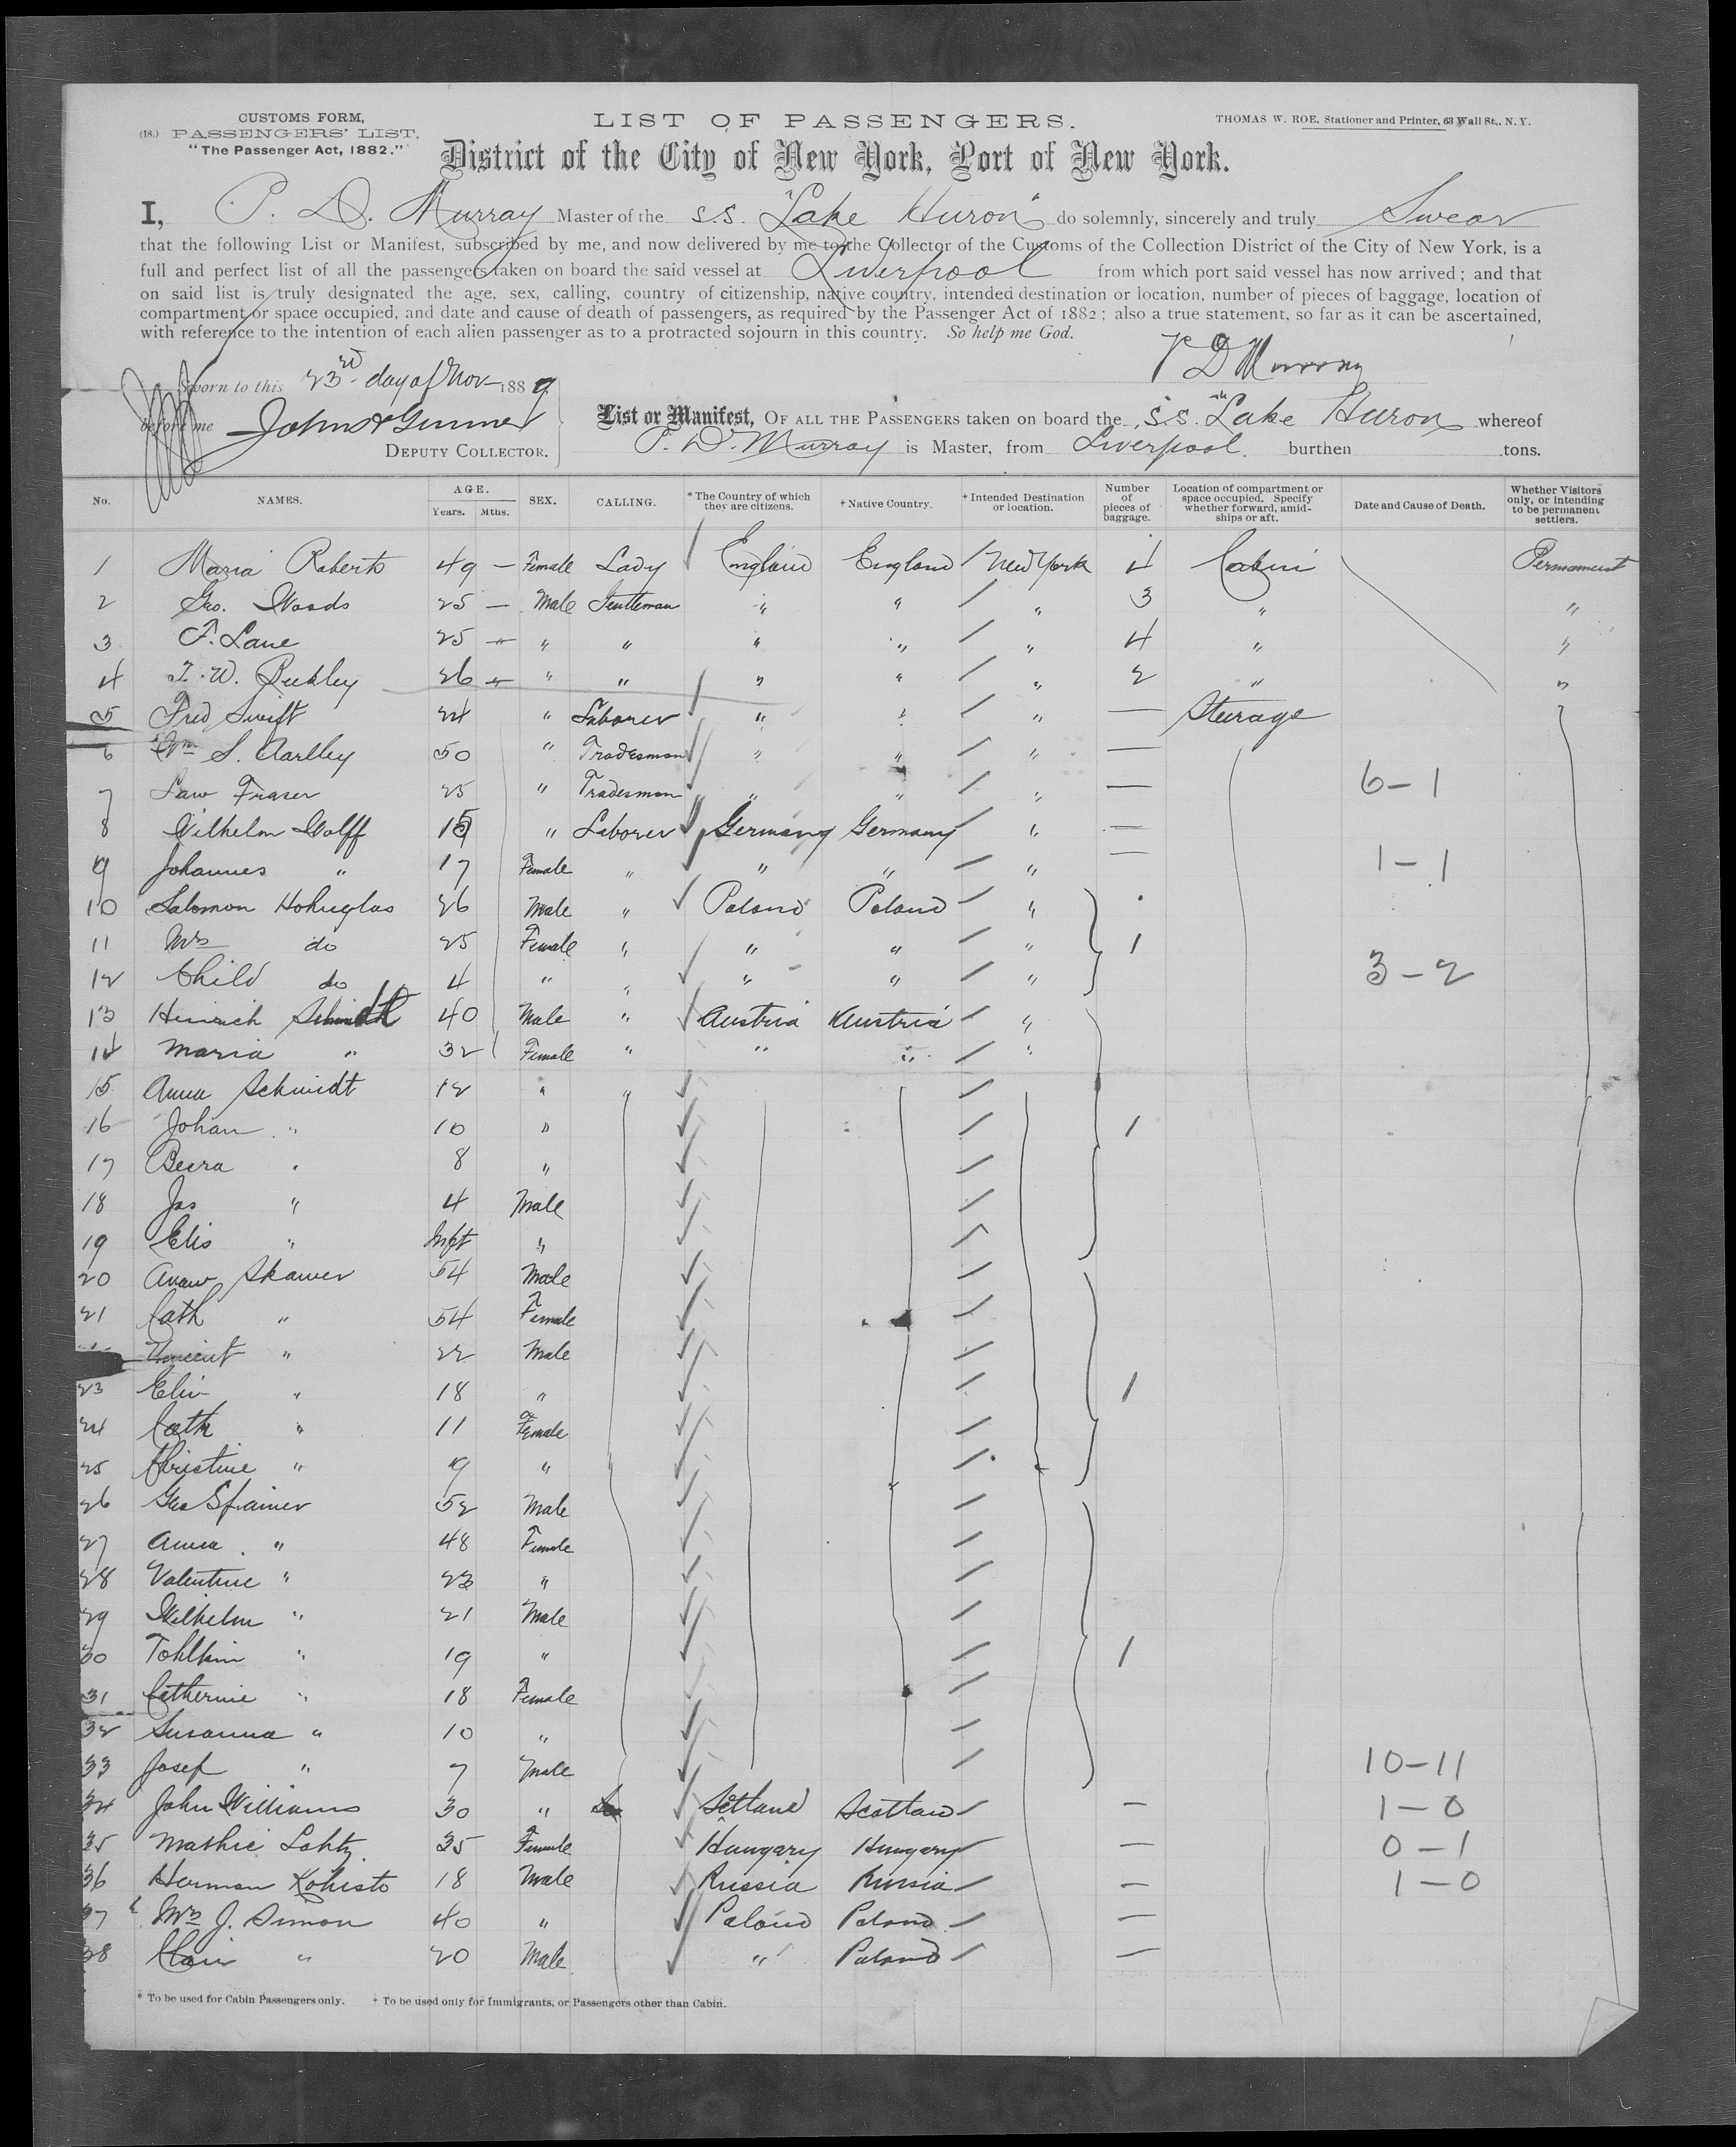 CUSTOMS FORM,
(18.) PASSENGERS' LIST.
"The Passenger Act, 1882."
LIST OF PASSENGERS.
THOMAS W. ROE, Stationer and Printer, 63 Wall St., N.Y.
District of the City of New York, Port of New York.
I, P. D. Murray Master of the S.S. "Lake Huron" do solemnly, sincerely and truly Swear
that the following List or Manifest, subscribed by me, and now delivered by me to the Collector of the Customs of the Collection District of the City of New York, is a
full and perfect list of all the passengers taken on board the said vessel at Liverpool from which port said vessel has now arrived; and that
on said list is truly designated the age, sex, calling, country of citizenship, native country, intended destination or location, number of pieces of baggage, location of
compartment or space occupied, and date and cause of death of passengers, as required by the Passenger Act of 1882; also a true statement, so far as it can be ascertained,
with reference to the intention of each alien passenger as to a protracted sojourn in this country. So help me God.
P D Murray
Sworn to this 23rd day of Nov 1889
before me John
DEPUTY COLLECTOR.
List or Manifest, OF ALL THE PASSENGERS taken on board the S.S. Lake Huron whereof
P. D. Murray is Master, from Liverpool. burthen tons.
No. NAMES. AGE. Years. Mths. SEX. CALLING. * The Country of which they are citizens. † Native Country. † Intended Destination or location. Number of pieces of baggage. Location of compartment or space occupied. Specify whether forward, amidships or aft. Date and Cause of Death. Whether Visitors only, or intending to be permanent settlers.
1 Maria Roberts 49 — Female Lady England England / New York 4 Cabin Permament
2 Geo. Woods 25 — Male Gentleman " " / " 3 " "
3 F. Lane 25 — " " " " / " 4 " "
4 W. 26 — " " " " / " 2 " "
5 Fred Swift 24 " Laborer " " / " — Steerage "
6 Wm S. 50 " Tradesman " " / " —
7 Law Fraser 25 " Tradesman " " / " — 6-1
8 Wilhelm Wolff 15 " Laborer Germany Germany / " —
9 Johannes " 17 Female " " " / " — 1-1
10 Salomon 26 Male " Poland Poland / "
11 Mrs do 25 Female " " " / " 1
12 Child do 4 " " " " / " 3-2
13 Heinrich Schmidt 40 Male " Austria Austria / "
14 Maria " 32 Female " " " / "
15 Anna Schmidt 12 " " /
16 Johan " 10 " / 1
17 " 8 " /
18 Jas " 4 Male /
19 Elis " Inft " /
20 54 Male /
21 Cath " 54 Female /
Vincent " 22 Male /
23 " 18 " / 1
24 Cath " 11 Female /
25 Christine " 9 " /
26 Geo 52 Male /
27 Anna " 48 Female /
28 Valentine " 23 " /
29 Wilhelm " 21 Male /
30 " 19 " / 1
31 Catherine " 18 Female /
32 Susanna " 10 " /
33 Josef " 7 Male / 10-11
34 John Williams 30 " Scotland Scotland / — 1-0
35 35 Female Hungary Hungary / — 0-1
36 Herman 18 Male Russia Russia / — 1-0
37 Mrs J. Simon 40 " Poland Poland / —
38 " 20 Male " Poland / —
* To be used for Cabin Passengers only. † To be used only for Immigrants, or Passengers other than Cabin.